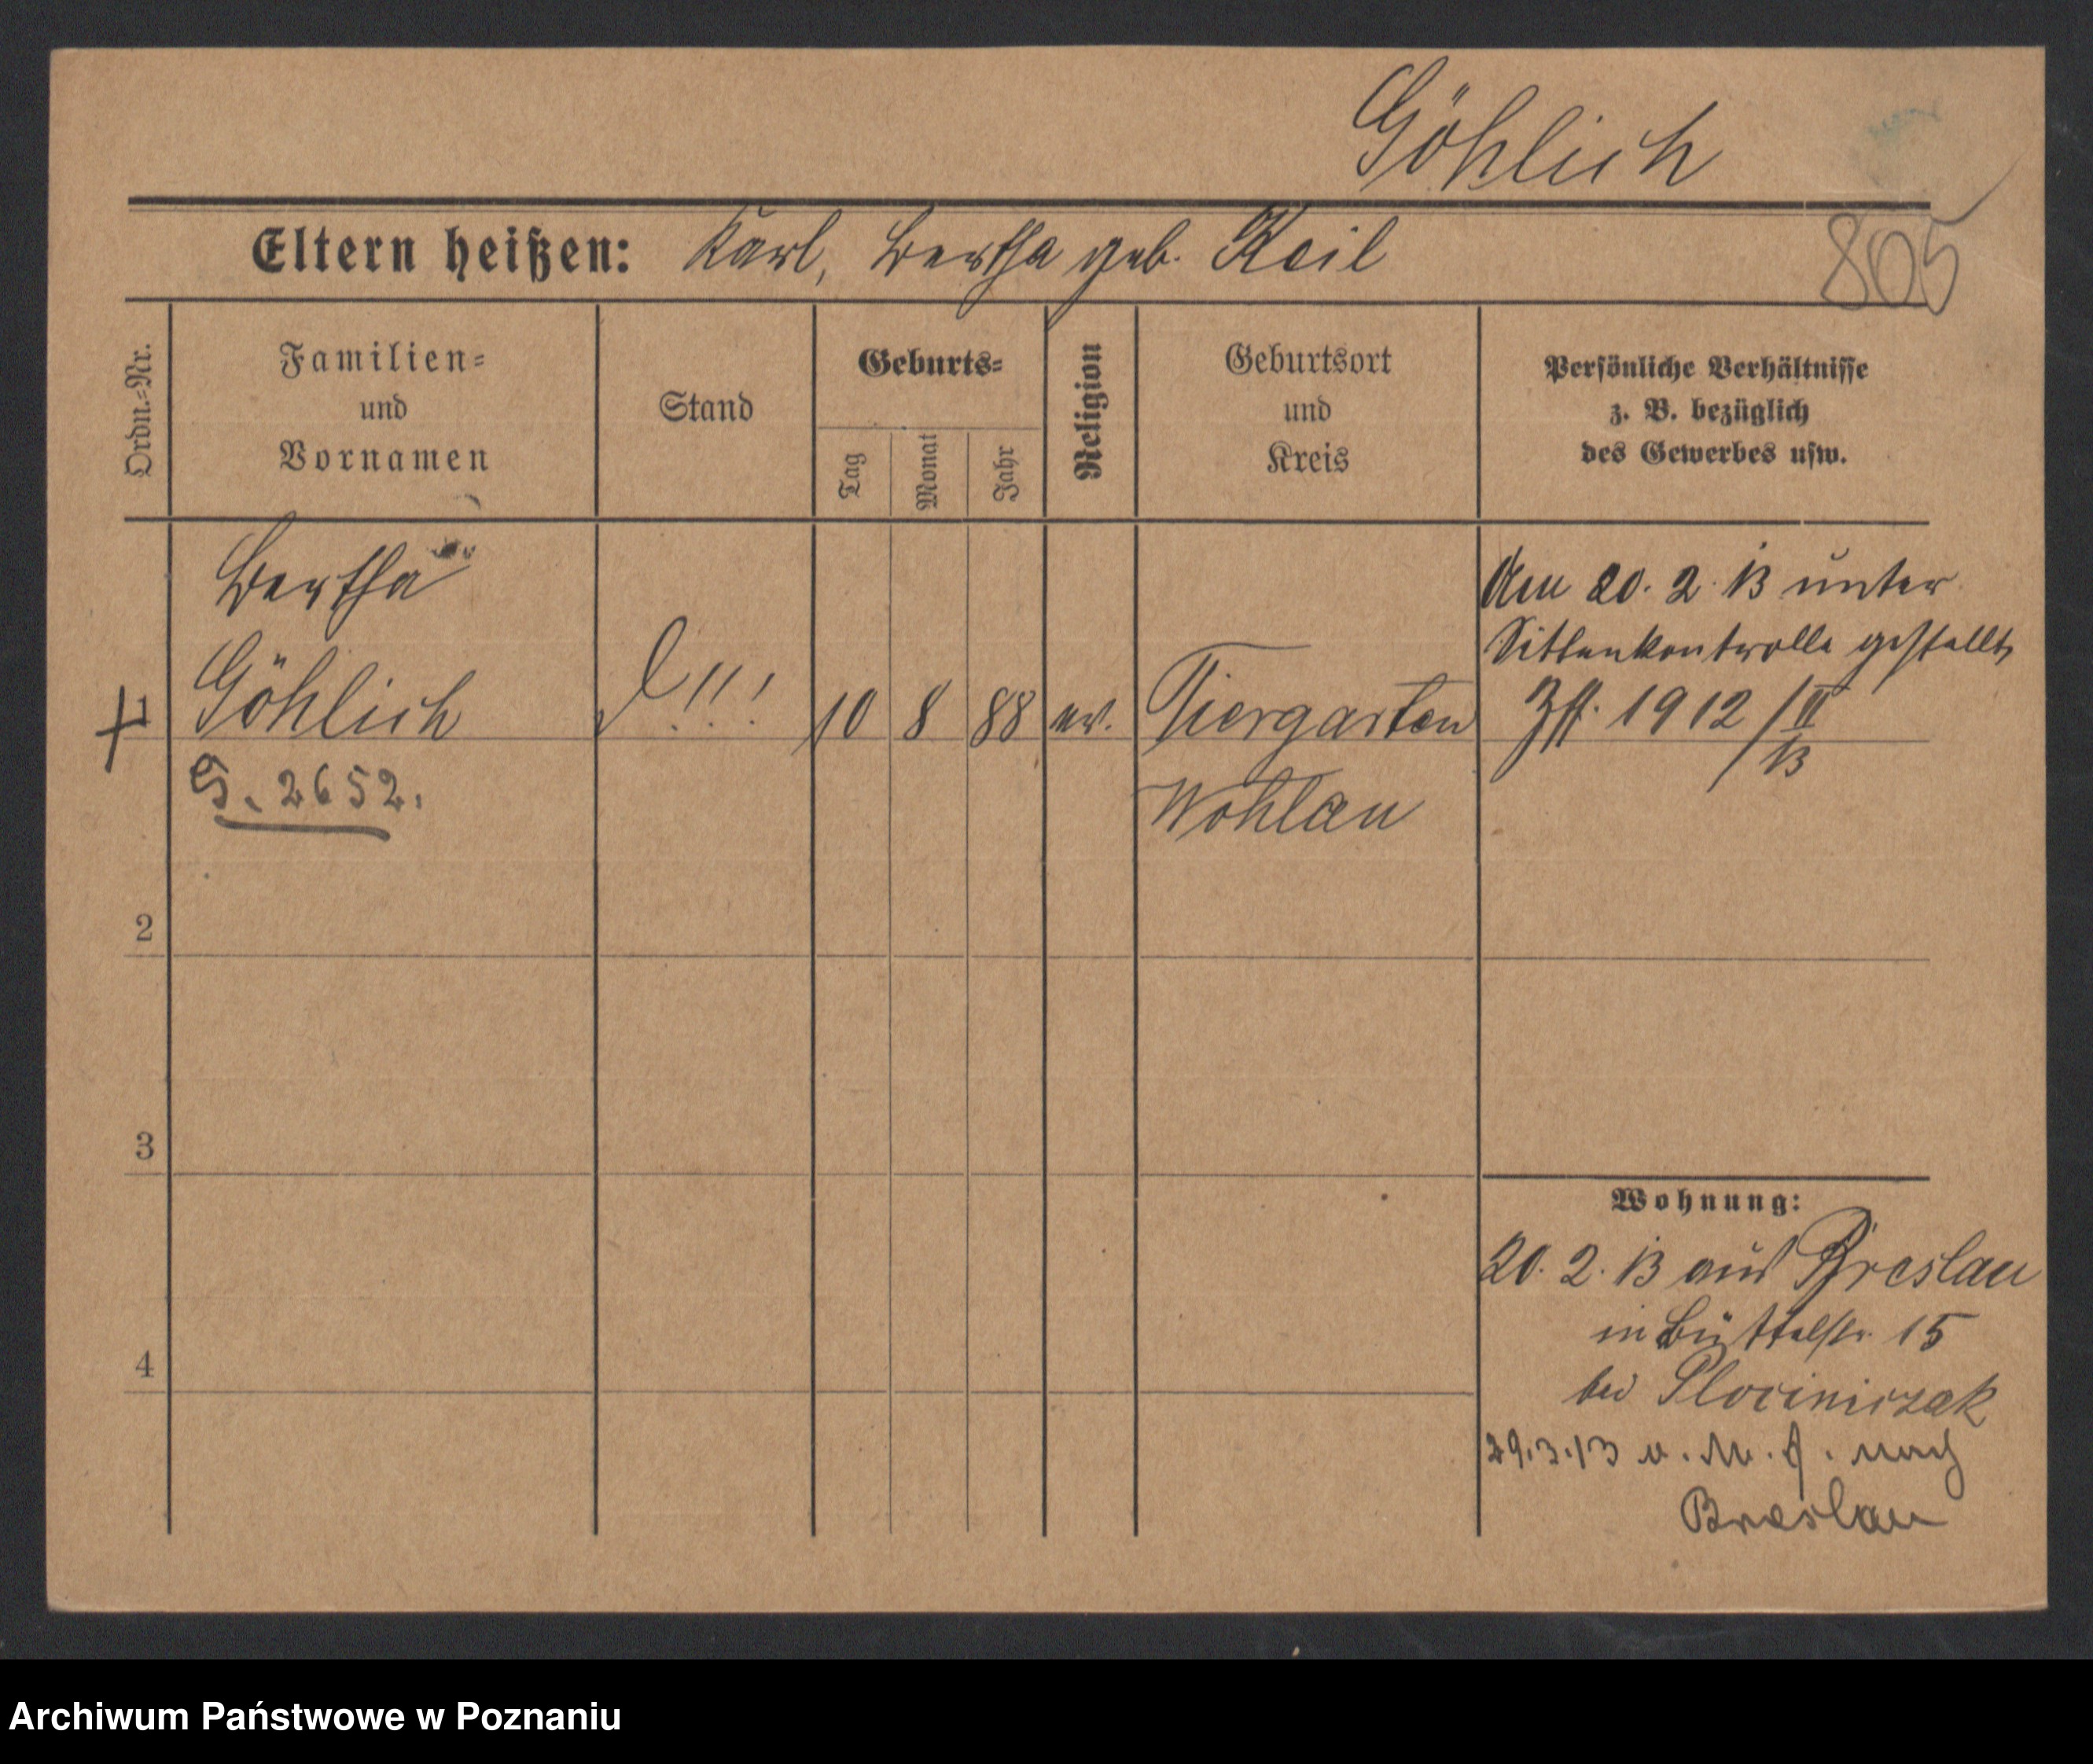 Göhlich
Eltern heißen: Karl, Bertha geb. Keil
805
Ordn.=Nr.
Familien=
und
Vornamen
Stand
Geburts=
Tag
Monat
Jahr
Religion
Geburtsort
und
Kreis
Persönliche Verhältnisse
z. B. bezüglich
des Gewerbes usw.
Bertha
Göhlich
1
!!!
10 8 88 ev.
Tiergarten
Wohlau
G. 2652.
Am 20. 2. 13 unter
Sittenkontrolle gestellt,
1912/II
13
2
3
4
Wohnung:
20. 2. 13 aus Breslau
in Büttelstr. 15
bei Plociniczak
29.3.13 nach
Breslau
Archiwum Państwowe w Poznaniu